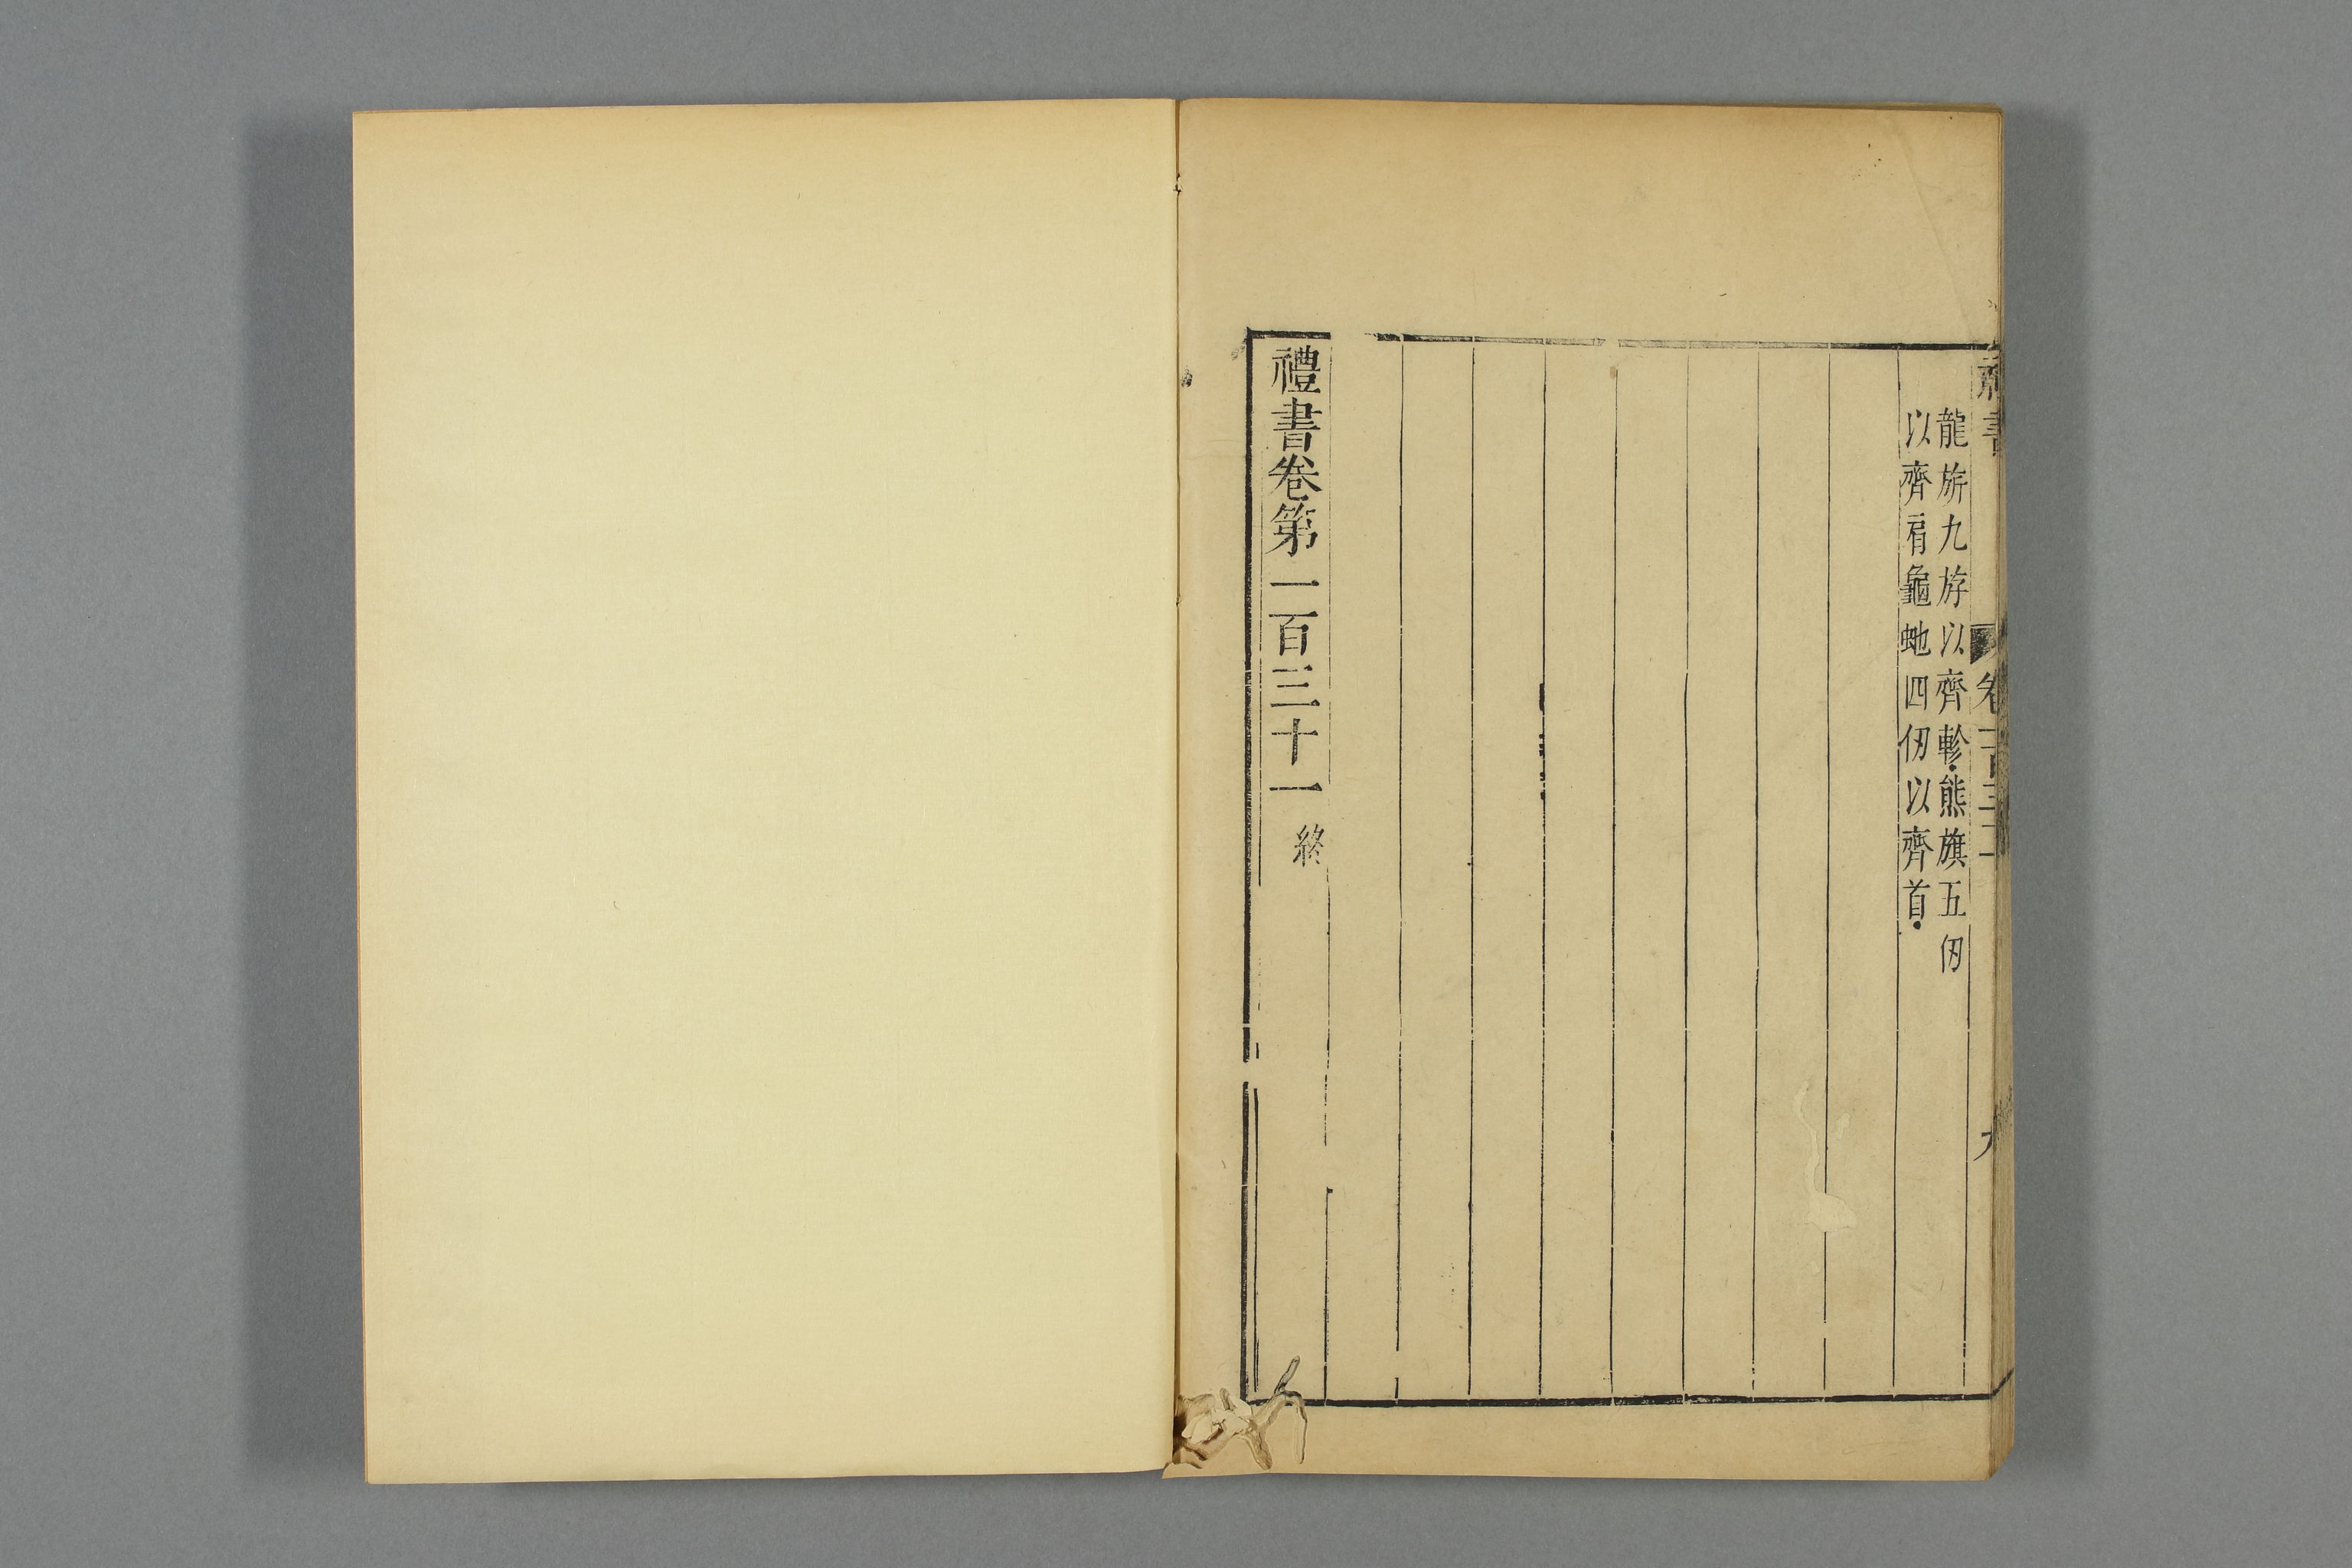 禮書
卷一百三十一
九
龍旂九斿以齊軫熊旗五仞
以齊肩龜虵四仞以齊首
禮書卷第一百三十一終